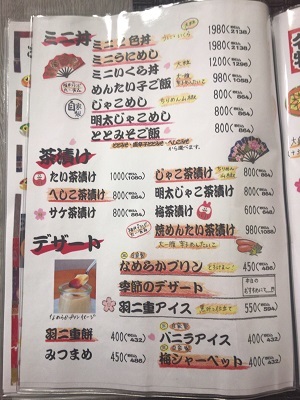 ミニ丼
ミニ二色丼 1980(税込2138)
ミニうにめし 1200(税込1296)
ミニいくら丼 1980(税込2138)
めんたい子ご飯 980(税込1058)
じゃこめし 800(税込864)
明太じゃこめし 800(税込864)
ととみそご飯 800(税込864)
から選べます。
茶漬け
たい茶漬け 1000(税込1080)
へしこ茶漬け 800(税込864)
サケ茶漬け 800(税込864)
じゃこ茶漬け 800(税込864)
明太じゃこ茶漬け 800(税込864)
梅茶漬け 800(税込864)
焼めんたい茶漬け 980(税込1058)
デザート
なめらかプリン 450(税込486)
季節のデザート
羽二重アイス 550(税込594)
羽二重餅 400(税込432)
みつまめ 450(税込486)
バニラアイス 400(税込432)
柚シャーベット 400(税込432)